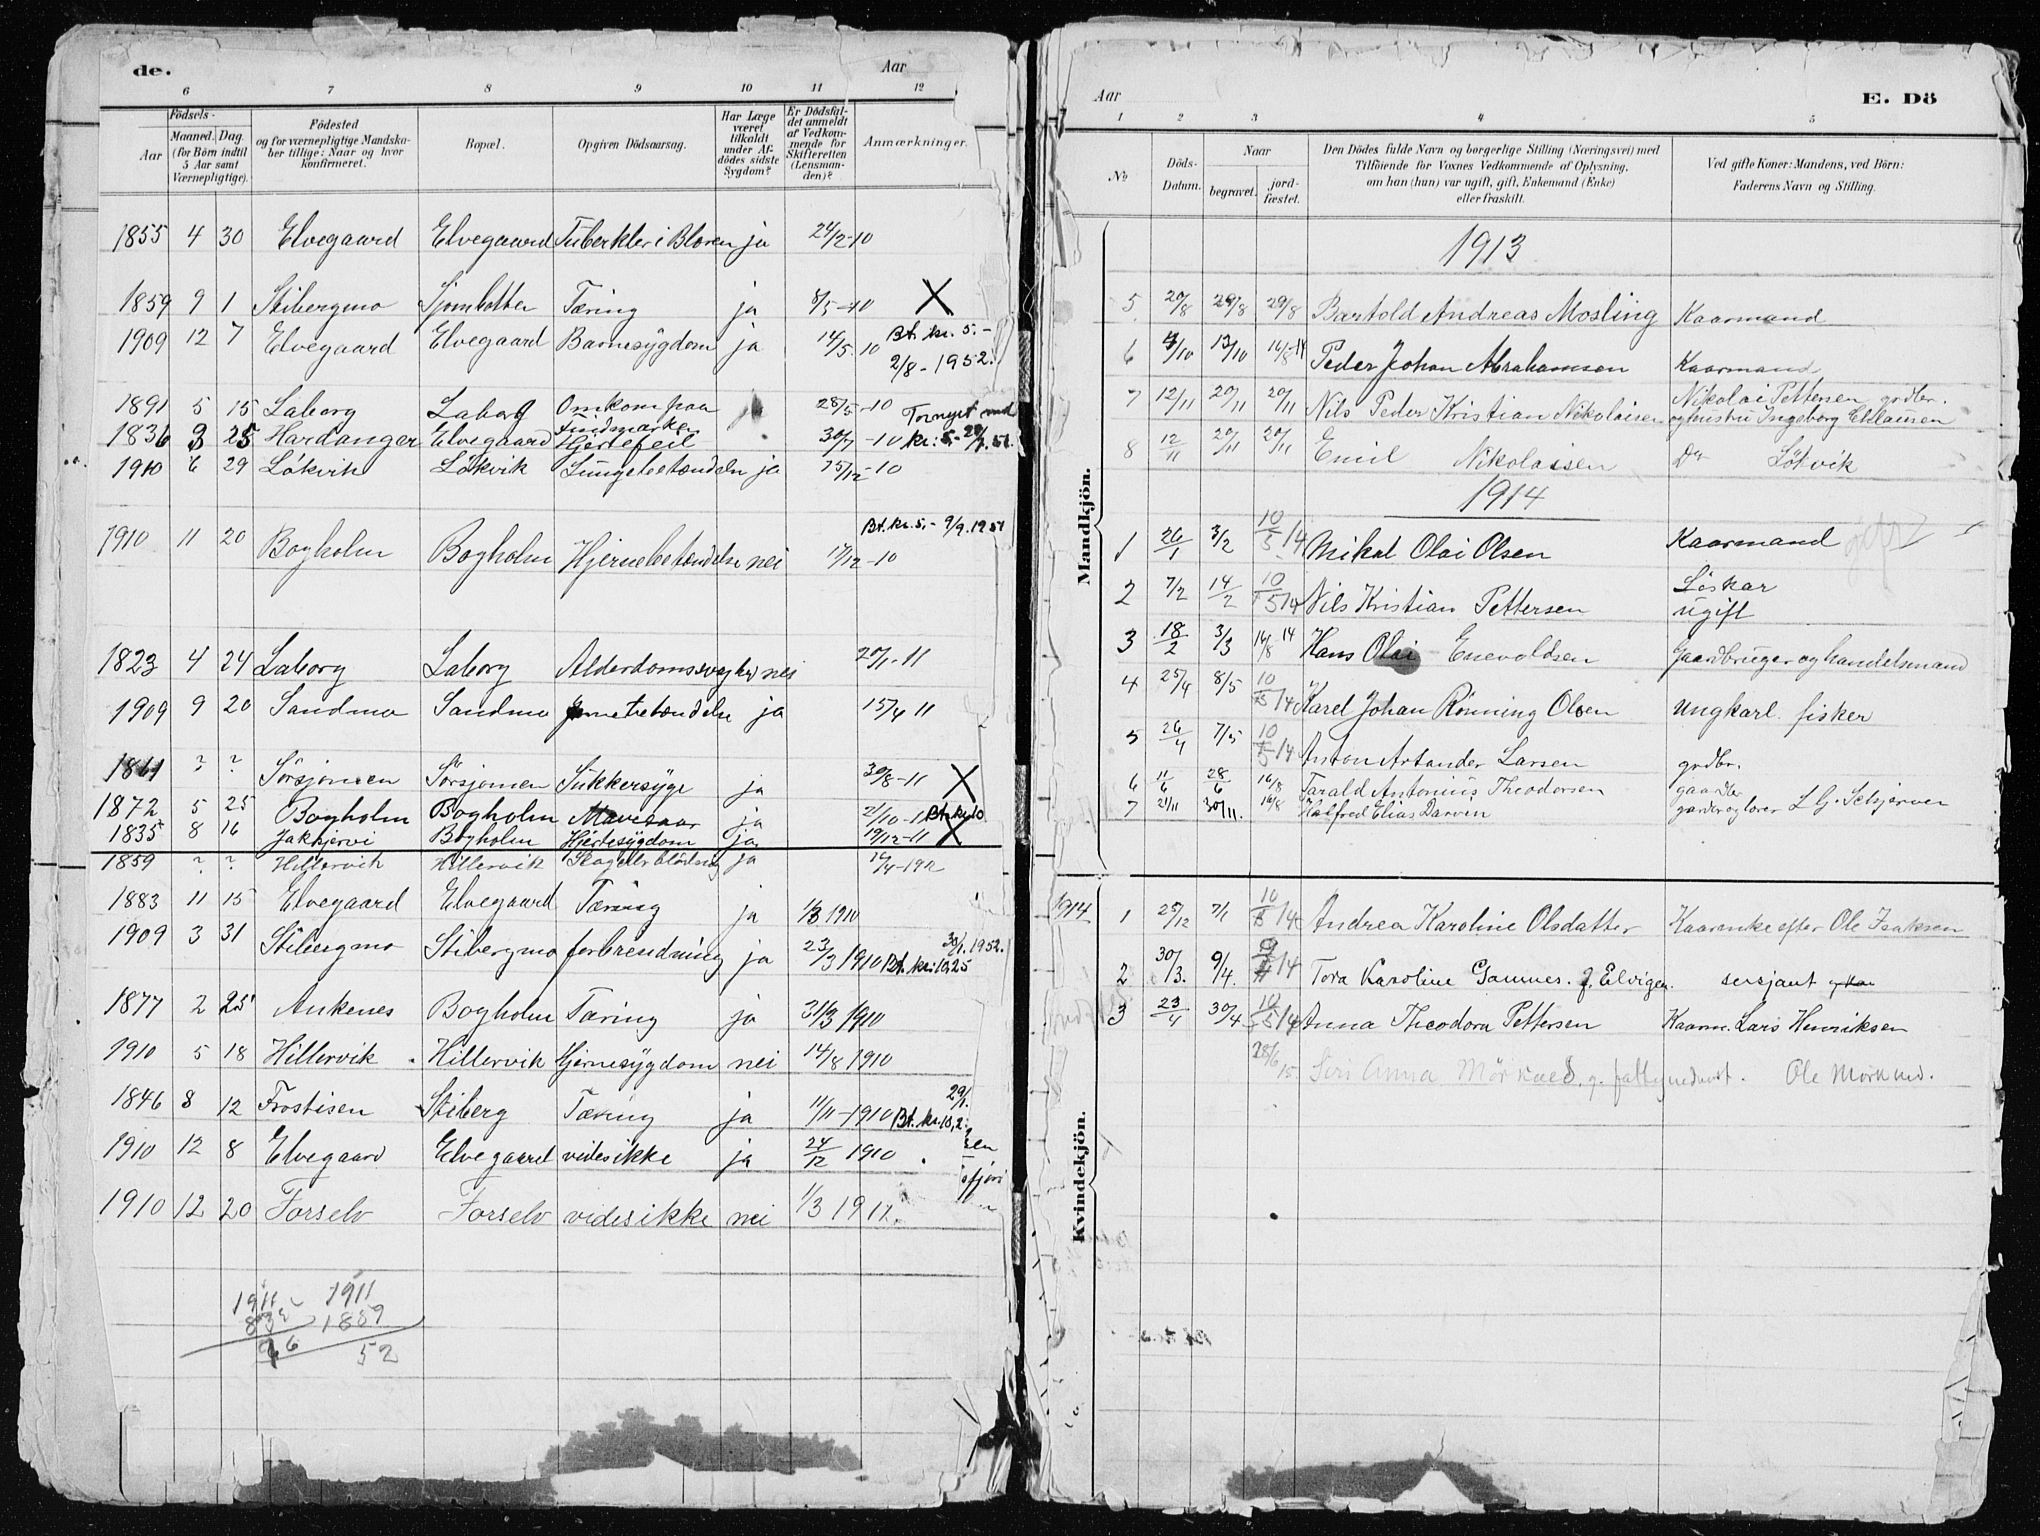 de.
Aar
6 7 8 9 10 11 12
Födsels-
Aar
Maaned. Dag.
(for Börn indtil 5 Aar samt Værnepligtige).
Födested
og for værnepligtige Mandska-
ber tillige: Naar og hvor
konfirmeret.
Bopæl.
Opgiven Dödsaarsag.
Har Læge
været
tilkaldt
under Af-
dödes sidste
Sygdom?
Er Dödsfal-
det anmeldt
af Vedkom-
mende for
Skifteretten
(Lensman-
den)?
Anmærkninger.
1855 4 30 Elvegaard Elvegaard Tuberkler i Bloren ja 24/2-10
1859 9 1 Stibergmo Sjombotten Tæring ja 8/5-10 X
1909 12 7 Elvegaard Elvegaard Barnesygdom ja 14/5-10 Bt. kr. 5.- 2/8-1952.
1891 5 15 Laborg Laborg Omkom paa Indmarken 28/5-10 Fornyet med
1836 3 25 Hardanger Elvegaard Hjertefeil 30/7-10 kr: 5.-
1910 6 29 Lökvik Lökvik Lungebetændelse ja 15/12-10
1910 11 20 Bogholm Bogholm Hjernebetændelse nei 17/12-10 Bt. kr. 5.- 9/9.1951
1823 4 24 Laborg Laborg Alderdomssvaghed nei 20/1-11
1909 9 20 Sandmo Sandmo ja 15/4 11
1861 ? ? Sörsjomen Sörsjomen Sukkersyge ja 30/8-11 X
1872 5 25 Bogholm Bogholm Mavesaar ja 2/10-11
1835 8 16 Bogholm Hjertesygdom ja 19/12-11 X
1859 ? ? Hillervik Hillervik ja 1912
1883 11 15 Elvegaard Elvegaard Tæring ja 1/3 1910
1909 3 31 Stibergmo Stibergmo forbrendning ja 23/3 1910 Bt. kr: 10,25 30/1.1952.
1877 2 25 Ankenes Bogholm Tæring ja 31/3 1910
1910 5 18 Hillervik Hillervik Hjernesygdom nei 14/8 1910
1846 8 12 Frostisen Stiberg Tæring ja 11/11-1910 Bt. kr. 10,2
1910 12 8 Elvegaard Elvegaard vides ikke ja 24/12 1910
1910 12 20 Forselv Forselv vides ikke nei 1/3 1912.
1911 1911
1859
52
Aar
E. Dö
1 2 3 4 5
No
Döds-
Datum.
Naar
begravet.
jord-
fæstet.
Den Dödes fulde Navn og borgerlige Stilling (Næringsvei) med
Tilföiende for Voxnes Vedkommende af Oplysning,
om han (hun) var ugift, gift, Enkemand (Enke)
eller fraskilt.
Ved gifte Koner: Mandens, ved Börn:
Faderens Navn og Stilling.
Mandkjön.
1913
5 20/8 29/8 29/8 Bartold Andreas Mosling Kaarmand
6 4/10 13/10 16/8-14 Peder Johan Abrahamsen Kaarmand
7 12/11 20/11 20/11 Nils Peder Kristian Nikolaisen Nikolai Pettersen grdbr. og hustru Ingeborg Ellausen
8 12/11 20/11 20/11 Emil Nikolaisen Do Lökvik
1914
1 26/1 3/2 10/5 14 Mikal Olai Olsen Kaarmand
2 7/2 14/2 10/5 14 Nils Kristian Pettersen Löskar ugift
3 18/2 3/3 16/8 14 Hans Olai Enevoldsen Gaardbruger og handelsmand
4 25/4 8/5 10/5 14 Karel Johan Rönning Olsen Ungkarl. fisker
5 26/4 7/5 10/5 14 Anton Artander Larsen grdbr.
6 11/6 28/6 16/8 Tarald Antonius Theodorsen
7 21/11 30/11. 16/8 Halfred Elias Darvin L. G. Schjerven
Kvindekjön.
1914 1 29/12 7/1 10/5 14 Andrea Karoline Olsdatter Kaarenke efter Ole Isaksen
2 30/3. 9/4. 14 Tora Karoline Gamnes. g. Elvigen. sersjant
3 23/4 30/4 10/5 14 Anna Theodora Pettersen Kaarm. Lars Henriksen
28/6 15 Anna Mörkved, g. Ole Mörkved.